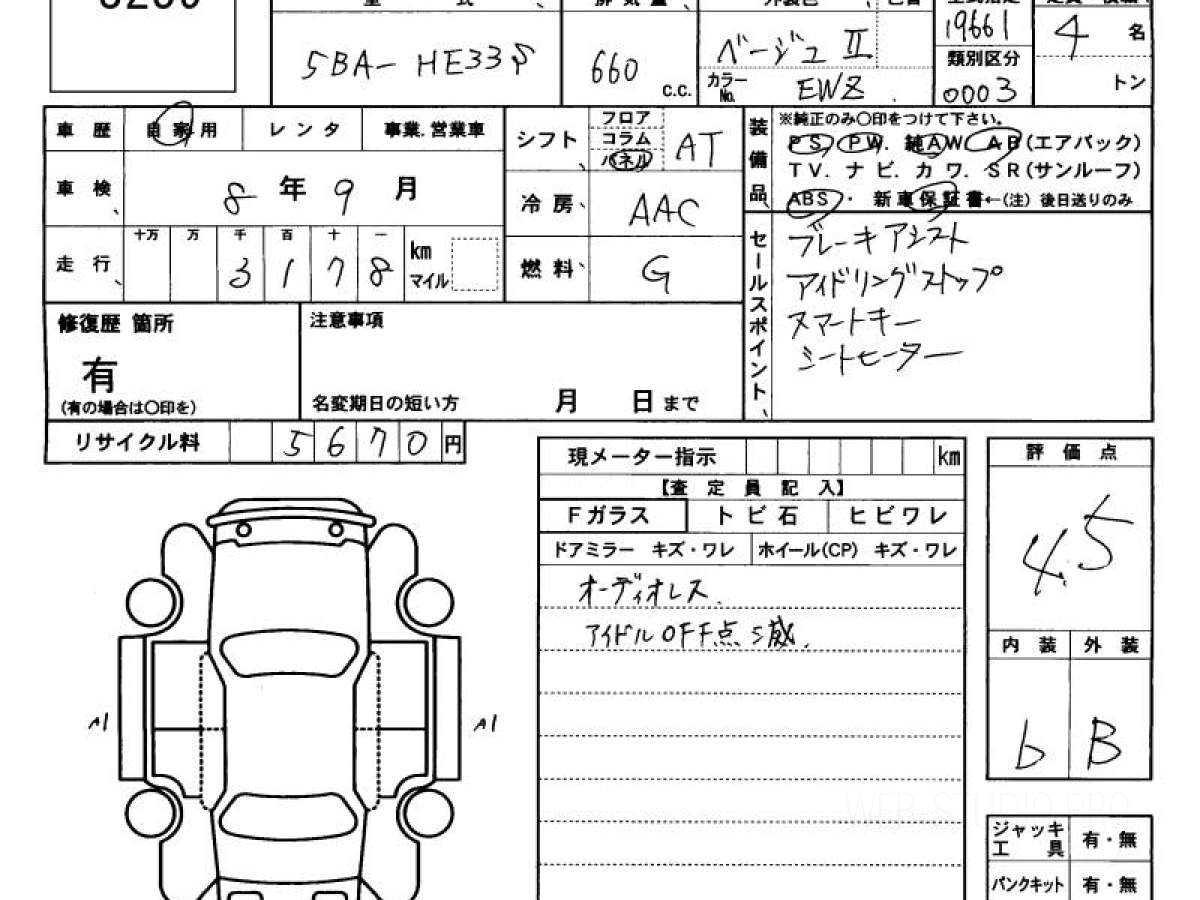 型 式 排 気 量 外装色 型式指定
5BA-HE33S 660 c.c. ベージュⅡ 19661 4 名
カラーNo. EWZ 類別区分 0003 トン
車 歴 自 家 用 レ ン タ 事業.営業車
車 検 8 年 9 月
走 行 十万 万 千 百 十 一
3 1 7 8 km マイル
シフト フロア コラム パネル AT
冷 房 AAC
燃 料 G
装備品 ※純正のみ〇印をつけて下さい。
PS. PW. 純AW. AB(エアバック)
TV. ナ ビ. カ ワ. SR(サンルーフ)
ABS・ 新 車 保 証 書←(注) 後日送りのみ
セールスポイント
ブレーキアシスト
アイドリングストップ
スマートキー
シートヒーター
修復歴 箇所
有
(有の場合は〇印を)
注意事項
名変期日の短い方 月 日 まで
リサイクル料 5 6 7 0 円
現メーター指示 km
【査 定 員 記 入】
Fガラス ト ビ 石 ヒ ビ ワ レ
ドアミラー キズ・ワレ ホイール(CP) キズ・ワレ
オーディオレス.
アイドルOFF点
評 価 点
4.5
内 装 外 装
b B
A1 A1
ジャッキ
工 具 有・無
パンクキット 有・無
WEB-STUDIO.PRO